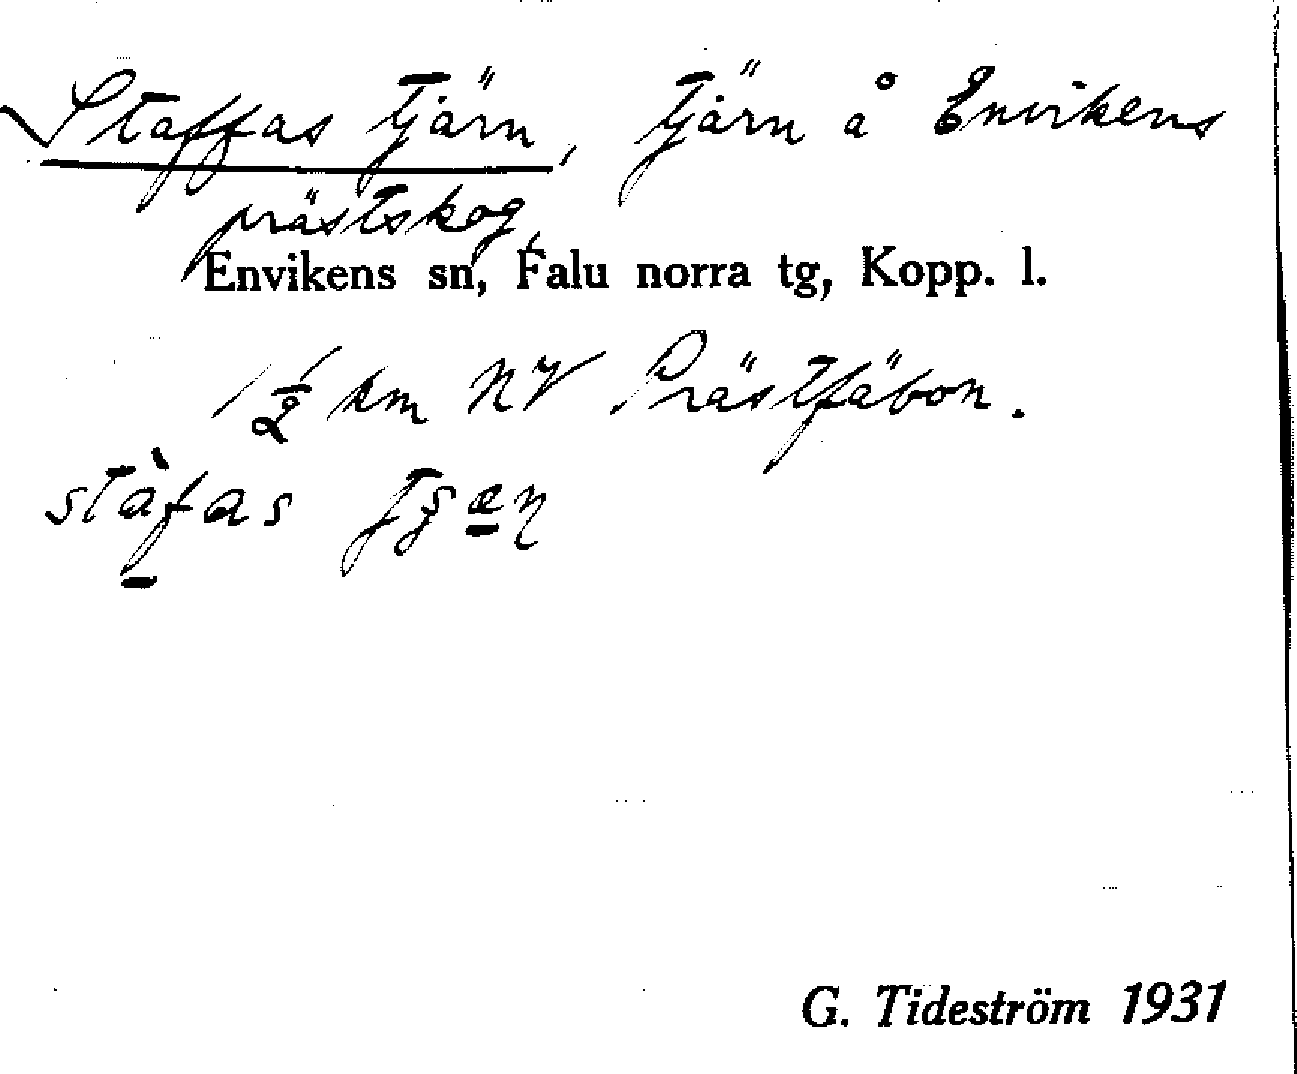 Staffas tjärn, tjärn å Envikens
prästskog,
Envikens sn, Falu norra tg, Kopp. l.
1 1/2 km NV Prästfäbon.
stàfas
G. Tideström 1931